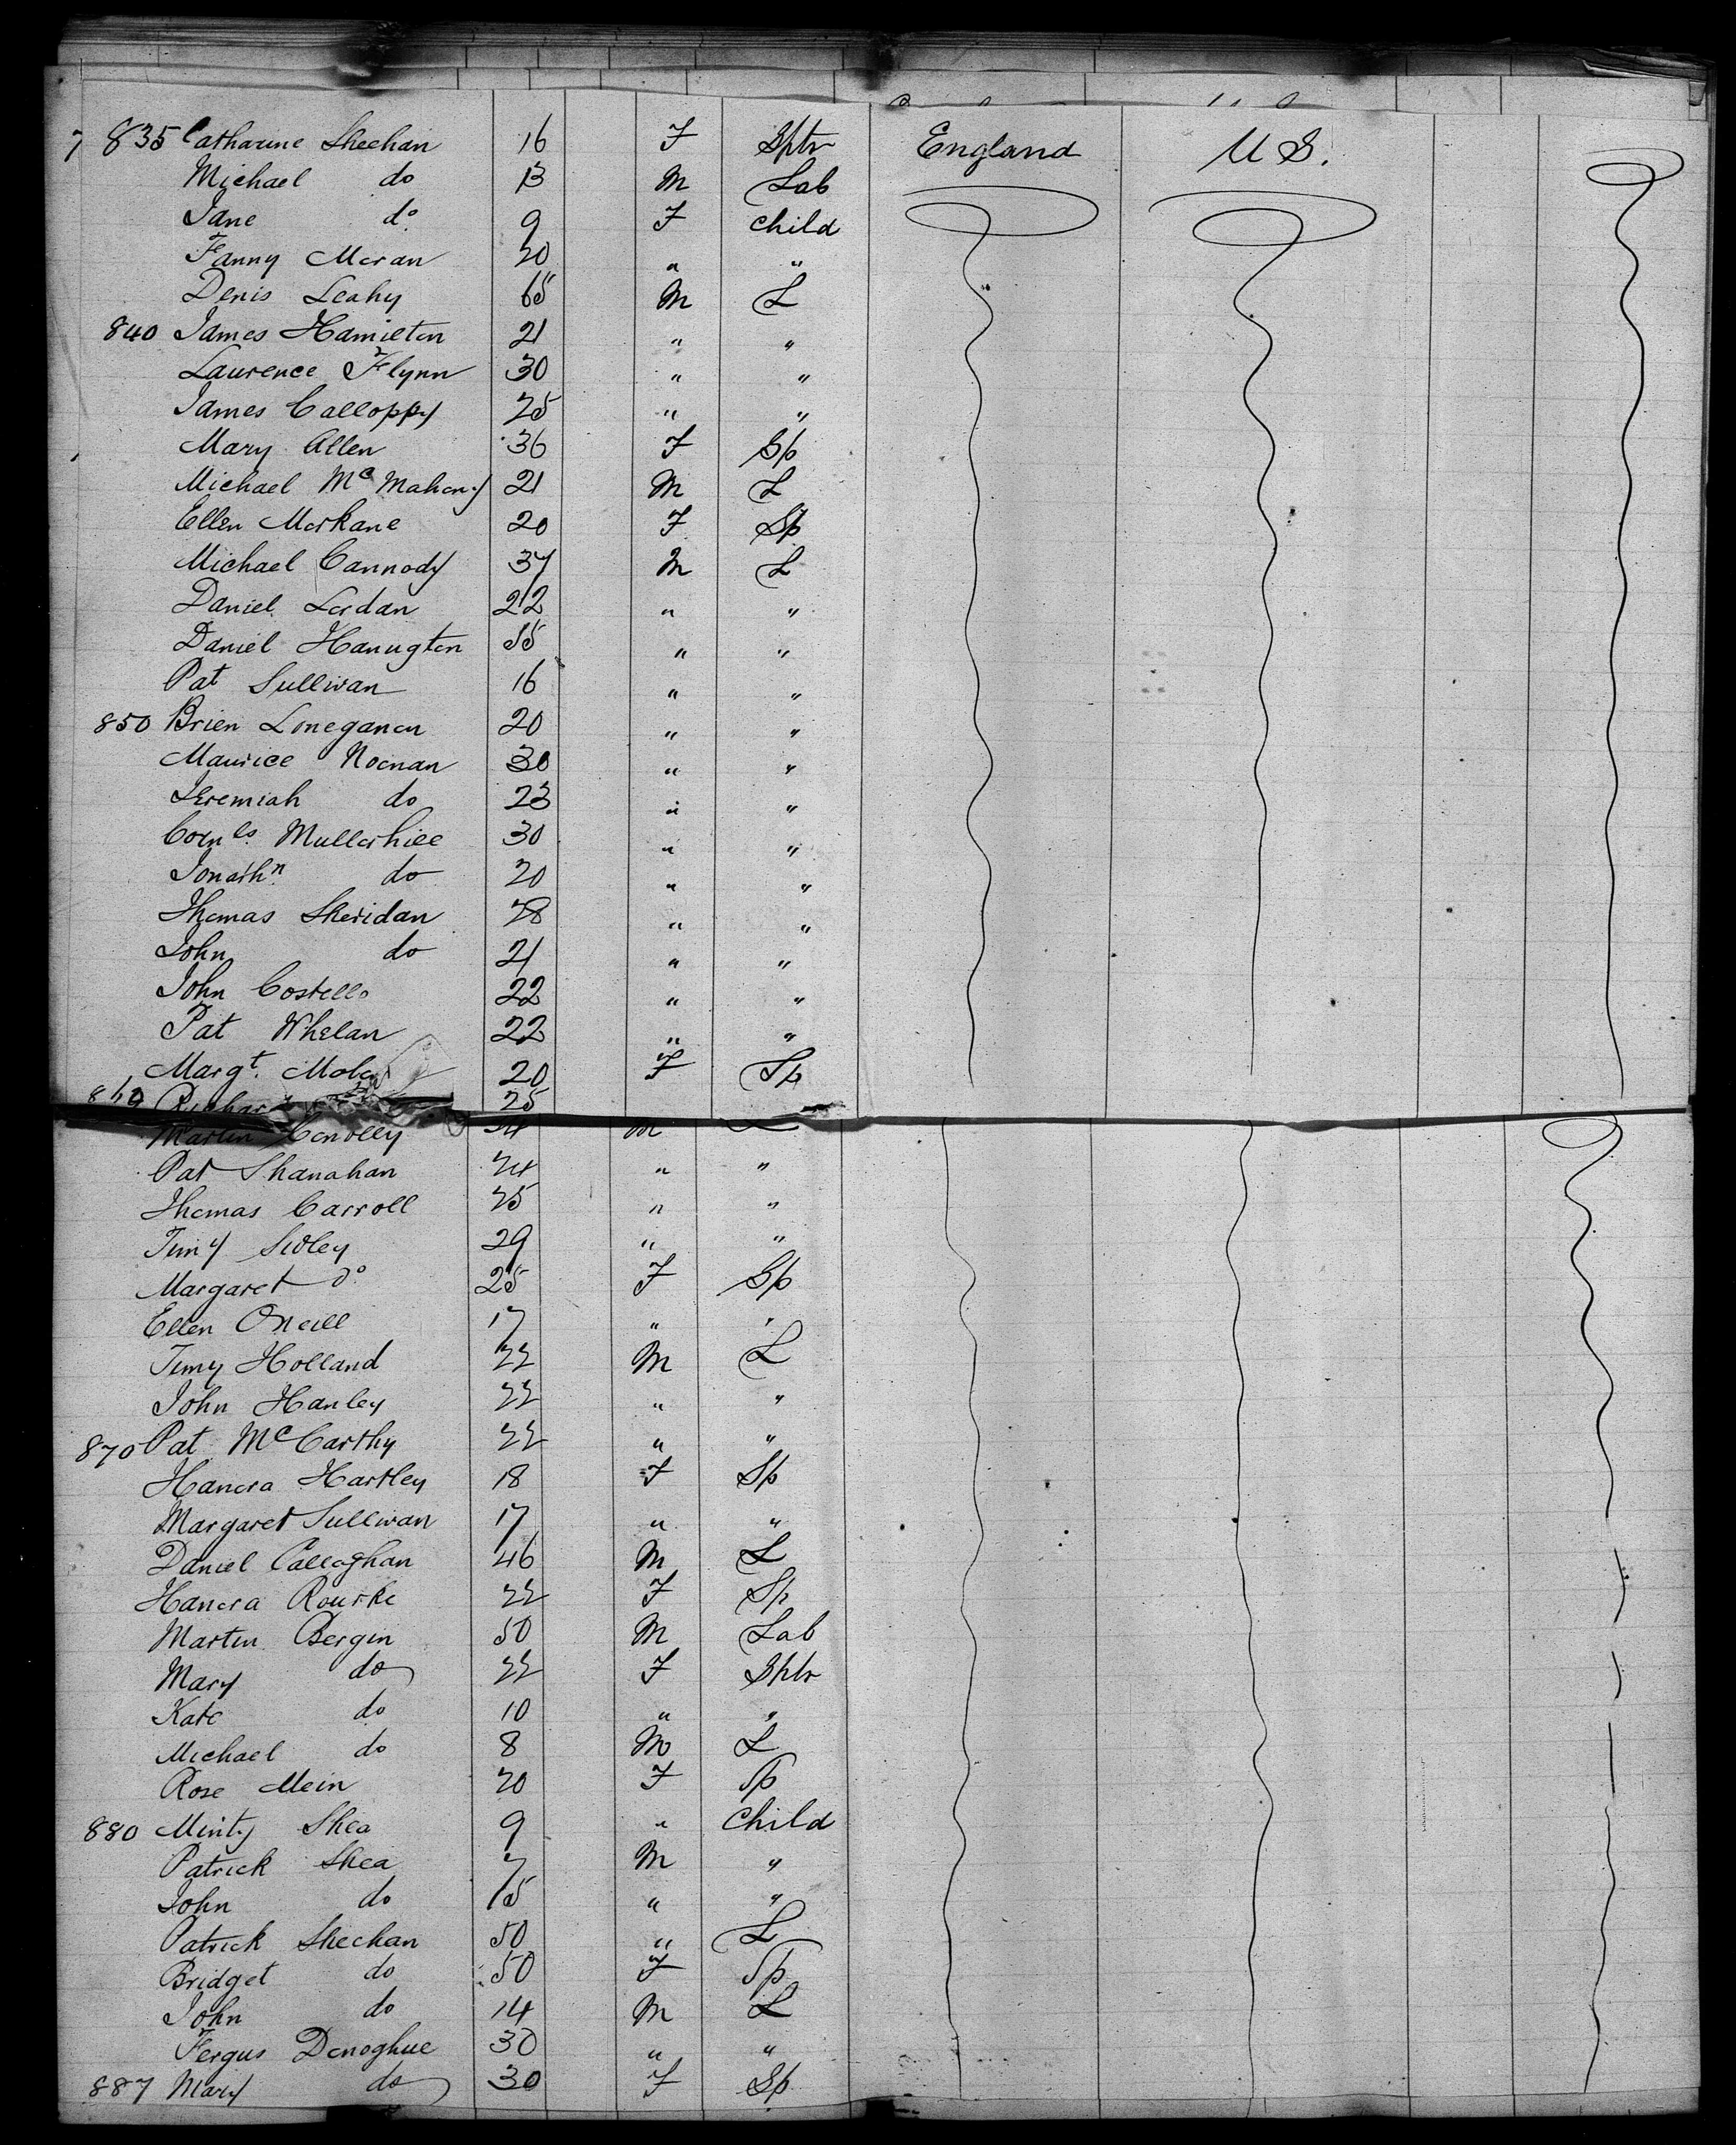 7 835 Catharine Sheehan 16 F Sptr England U S.
Michael do 13 M Lab
Jane do 9 F child
Fanny Moran 20 " "
Denis Leahy 65 M L
840 James Hamilton 21 " "
Laurence Flynn 30 " "
James Calloppy 25 " "
Mary Allen 36 F Sp
Michael McMahony 21 M L
Ellen Morkane 20 F Sp
Michael Cannody 37 M L
Daniel Lordan 22 " "
Daniel Hanugton 55 " "
Pat Sullivan 16 " "
850 Brien Loneganon 20 " "
Maurice Noonan 30 " "
Jeremiah do 23 " "
Cornls. Mullerhill 30 " "
Jonathn do 20 " "
Thomas Sheridan 28 " "
John do 21 " "
John Costello 22 " "
Pat Whelan 22 " "
Margt. 20 F Sp
860 25
Martin Conolly M L
Pat Shanahan 24 " "
Thomas Carroll 25 " "
Timy Sidley 29 " "
Margaret do 25 F Sp
Ellen ONeill 17 " "
Timy Holland 22 M L
John Hanley 22 " "
870 Pat McCarthy 22 " "
Hanora Hartley 18 F Sp
Margaret Sullivan 17 " "
Daniel Callaghan 46 M L
Hanora Rourke 22 F Sp
Martin Bergin 50 M Lab
Mary do 22 F Sptr
Kate do 10 " "
Michael do 8 M L
Rose Mein 20 F Sp
880 Minty Shea 9 " Child
Patrick Shea 7 M "
John do 15 " "
Patrick Sheehan 50 " L
Bridget do 50 F Sp
John do 14 M L
Fergus Donoghue 30 " "
887 Mary do 30 F Sp